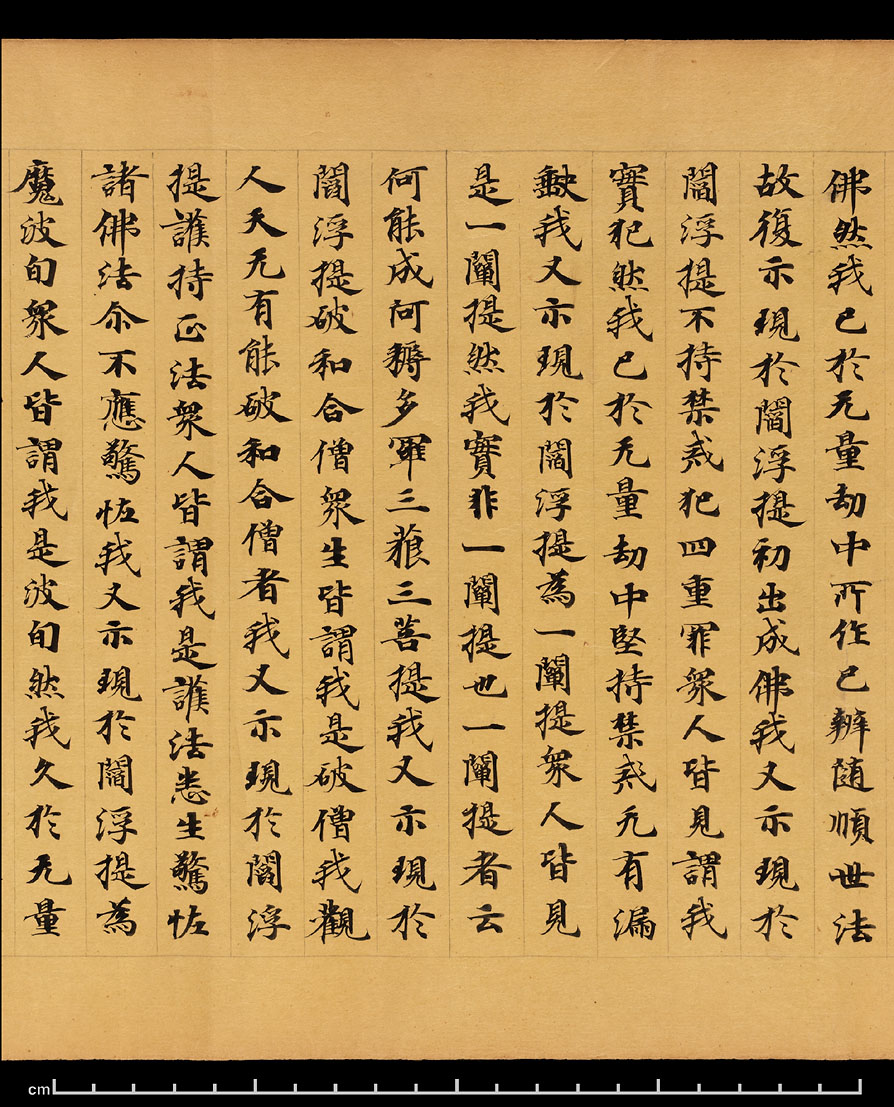 佛然我已於无量劫中所作已辦随順世法
故復示現於閻浮提初出成佛我又示現於
閻浮提不持禁戒犯四重罪衆人皆見謂我
實犯然我已於无量劫中堅持禁戒无有漏
𡙇我又示現於閻浮提為一闡提衆人皆見
是一闡提然我實非一闡提也一闡提者云
何能成阿耨多羅三藐三菩提我又示現於
閻浮提破和合僧衆生皆謂我是破僧我觀
人天无有能破和合僧者我又示現於閻浮
提護持正法衆人皆謂我是護法悉生驚恠
諸佛法尒不應驚恠我又示現於閻浮提為
魔波旬衆人皆謂我是波旬然我久於无量
cm